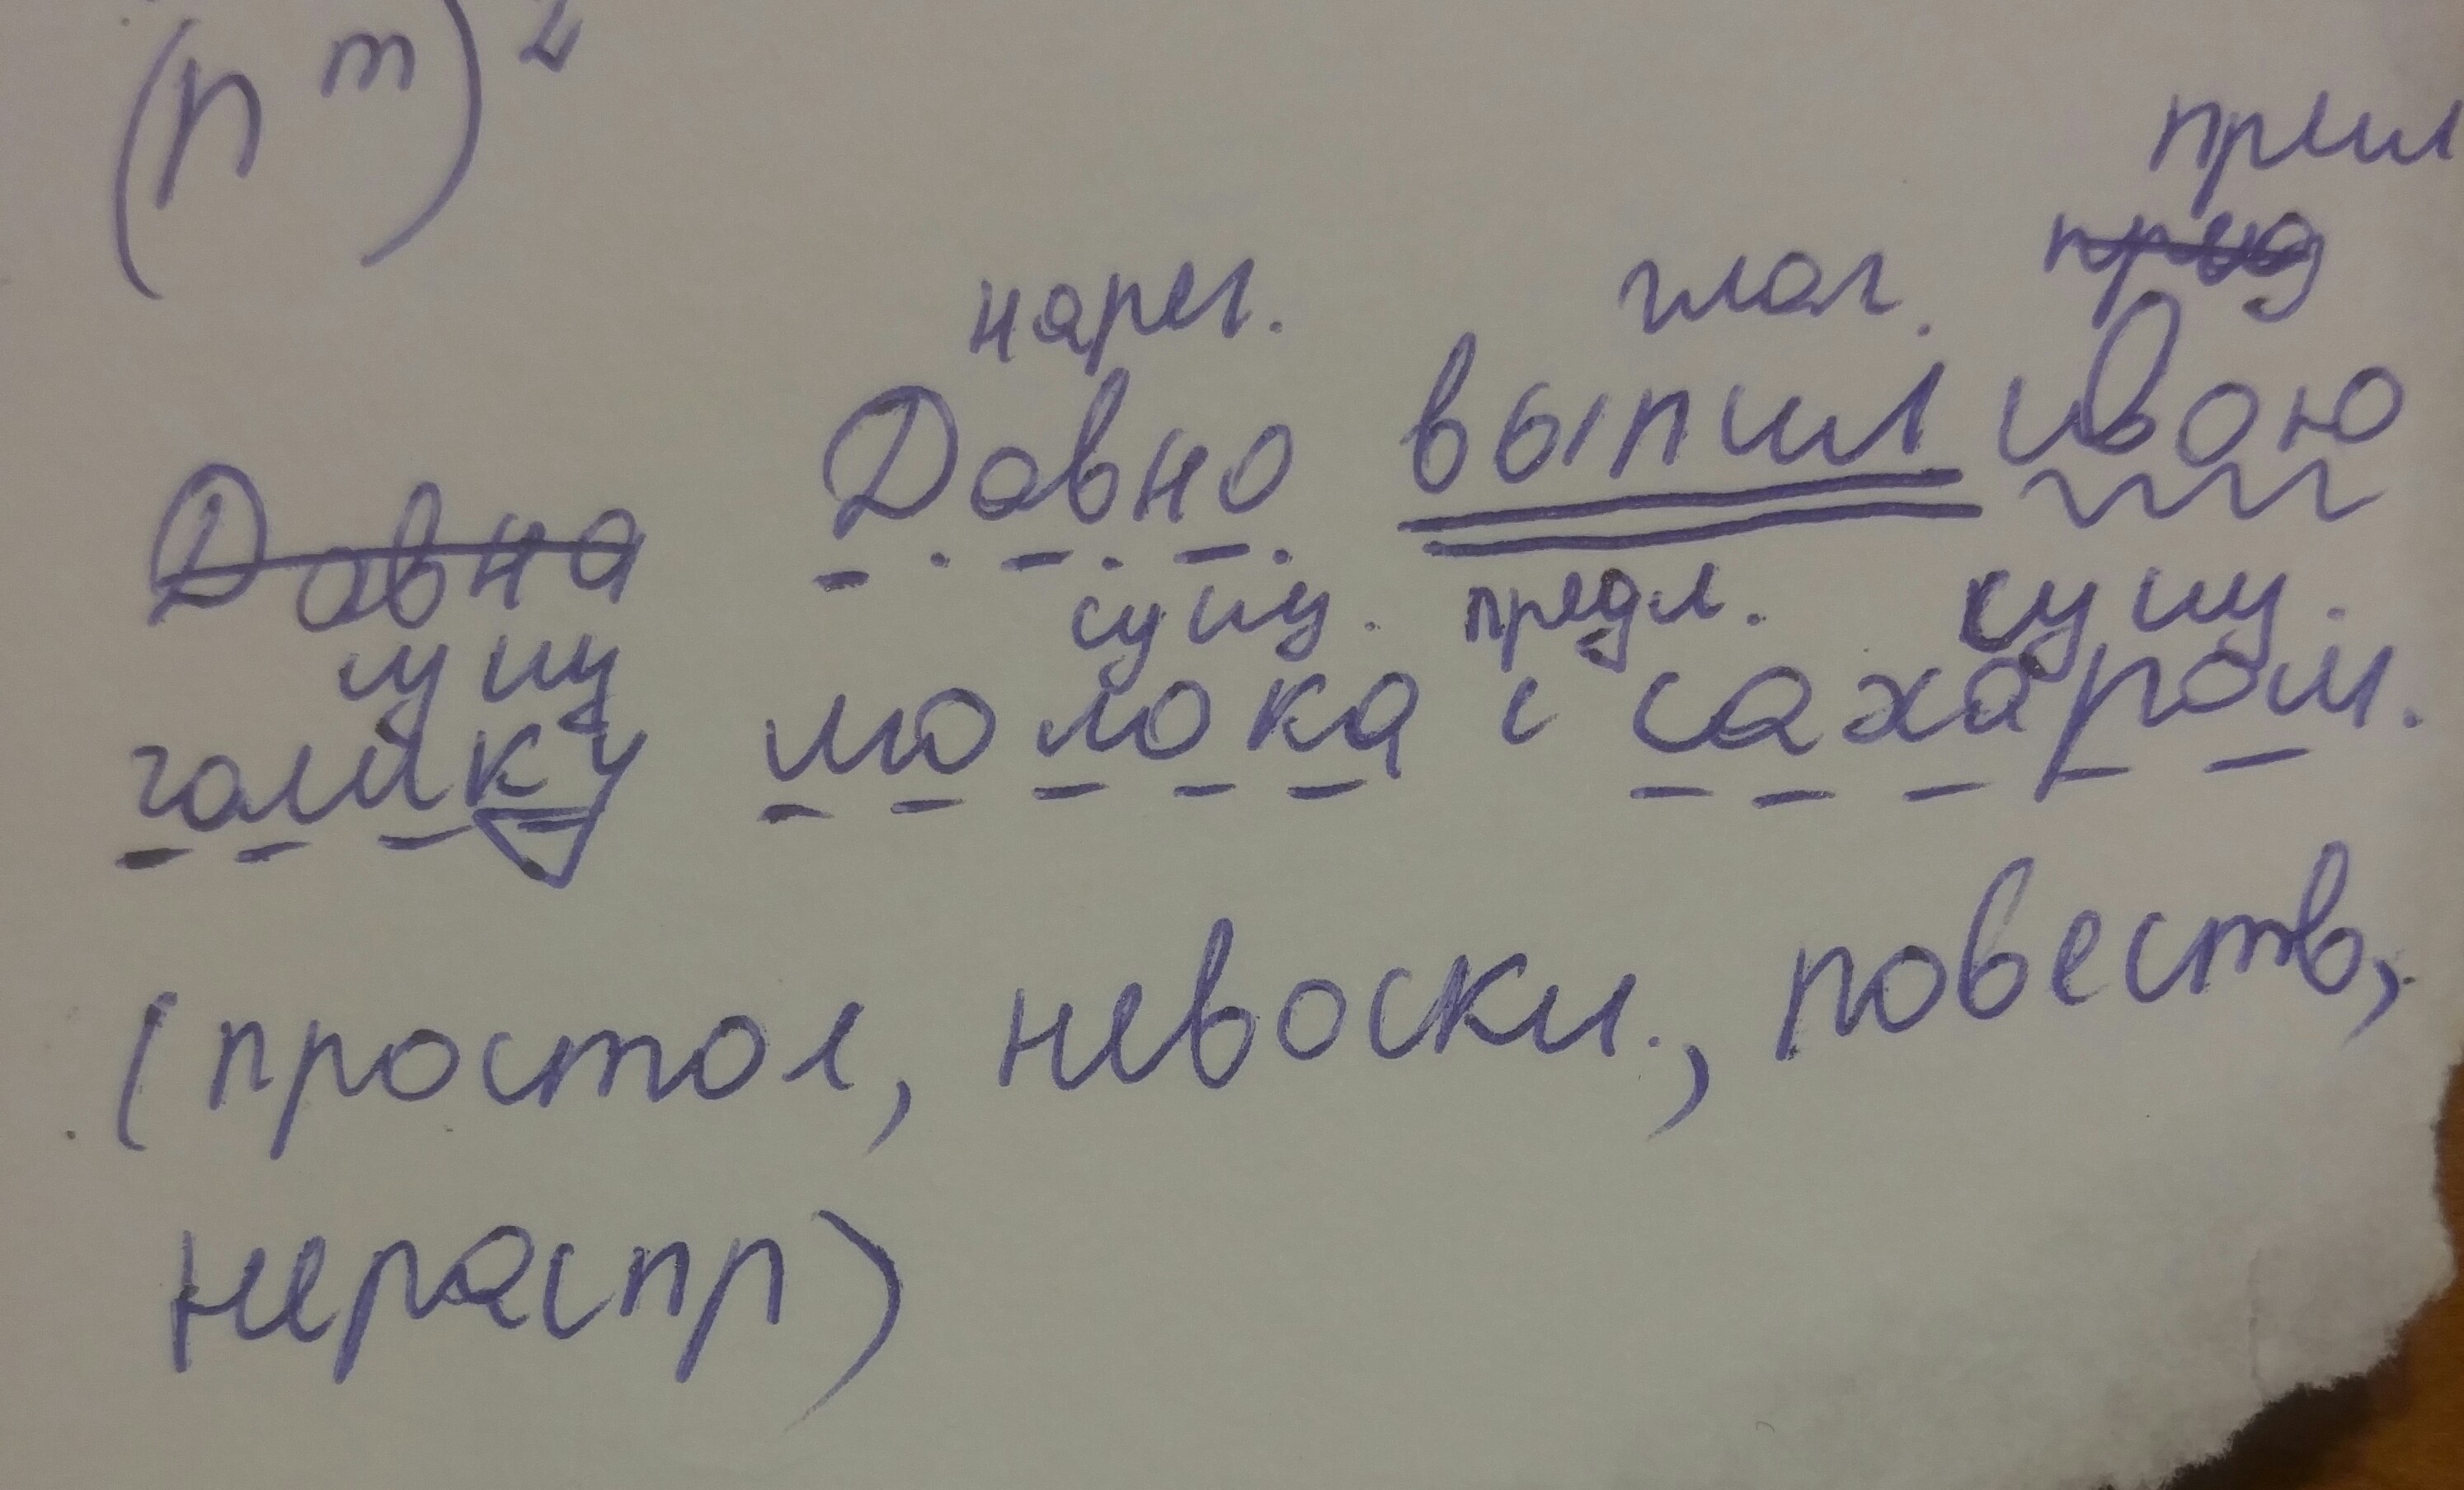 (n^m)^2
прил
нареч. глаг. пред
Давно Давно выпил свою
сущ сущ. предл. сущ.
голику молока с сахаром.
(простое, невоскл., повеств,
нераспр)